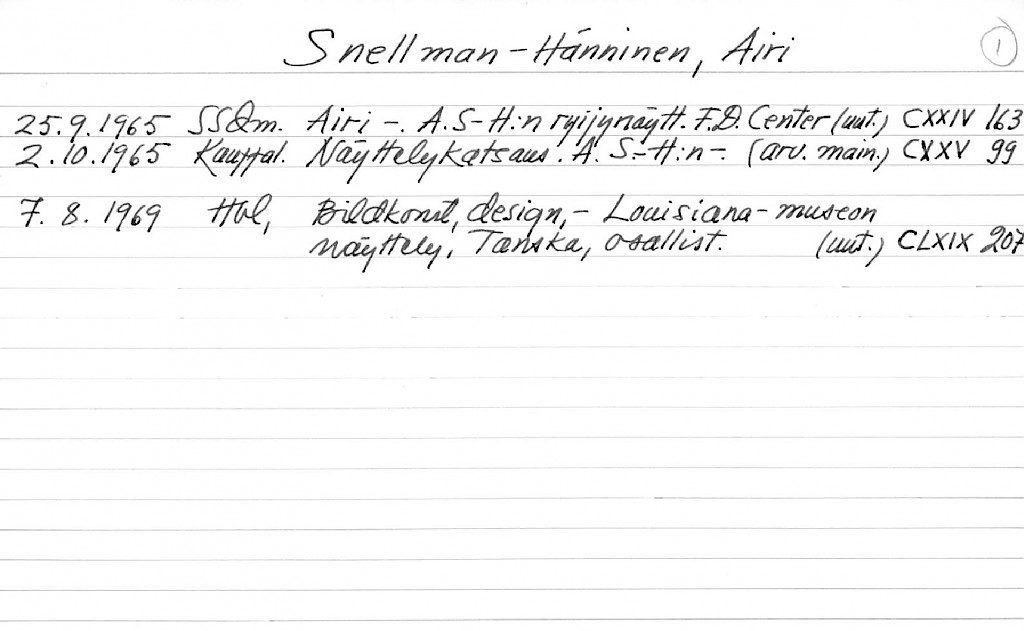 Snellman-Hänninen, Airi 1
25.9.1965 SSdm. Airi -. A.S-H:n ryijynäytt. F.D. Center (uut.) CXXIV 163
2.10.1965 Kauppal. Näyttelykatsaus. A. S.-H:n -. (arv. main.) CXXV 99
7. 8. 1969 Hbl, Bildkonst, design, - Louisiana-museon
näyttely, Tanska, osallist. (uut.) CLXIX 207